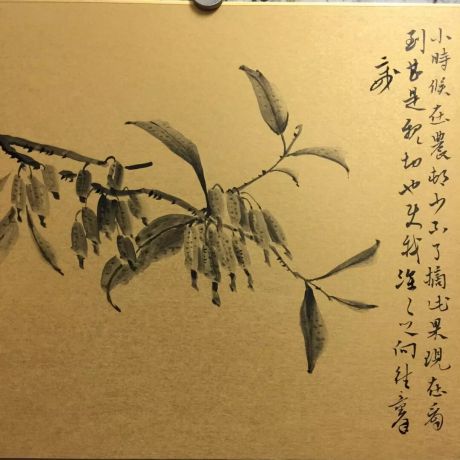 小時候在農邨少不了摘此果現在看
到甚是親切也我之向往